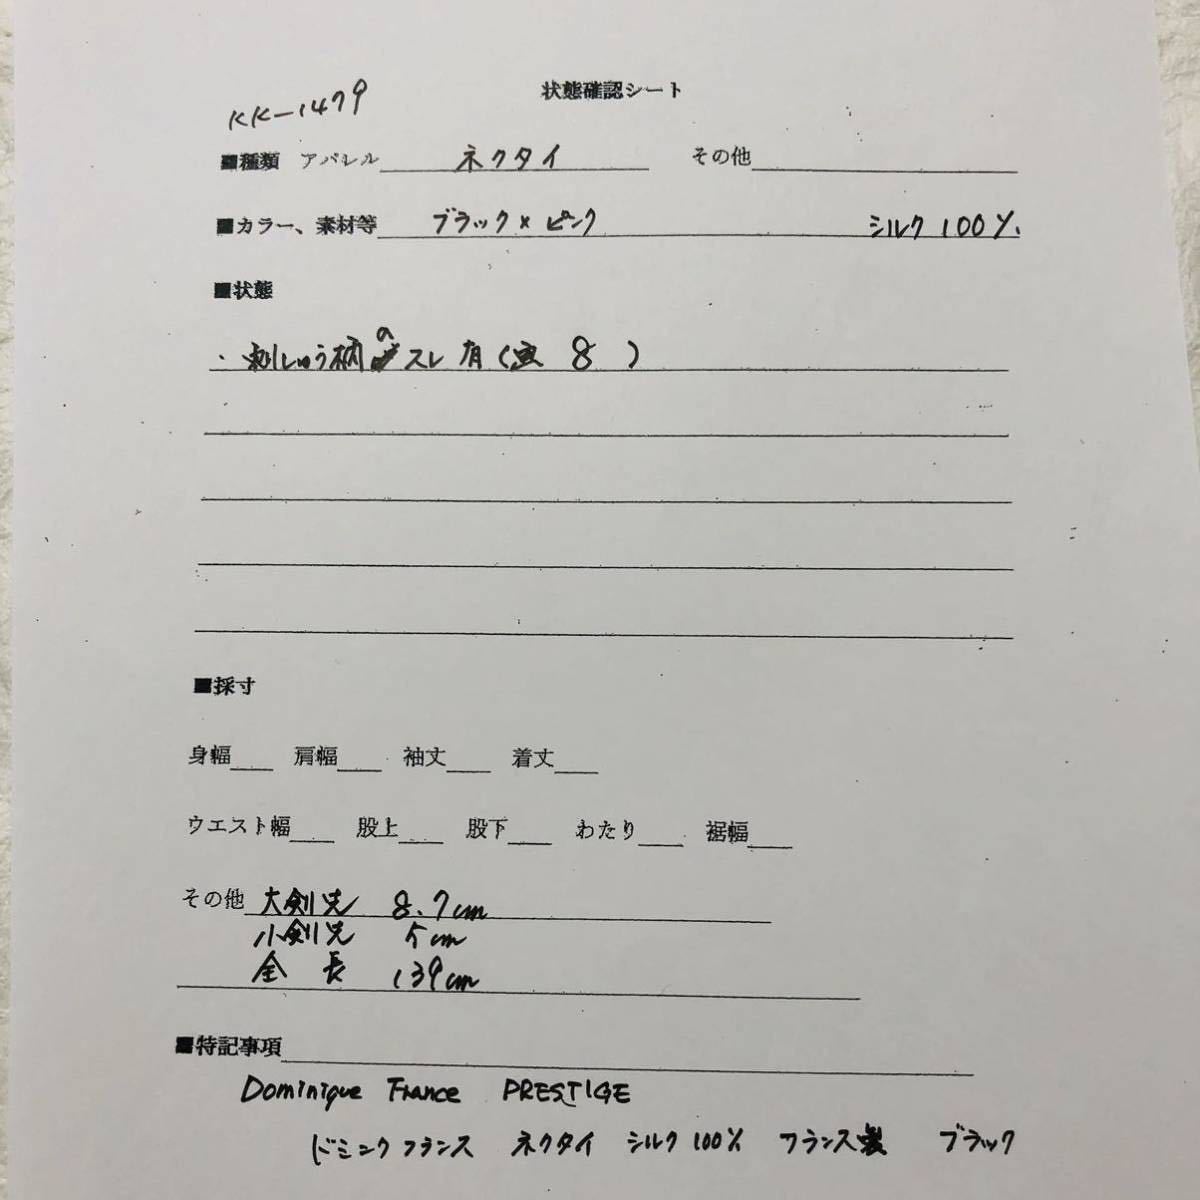 状態確認シート
KK-1479
■種類 アパレル ネクタイ その他
■カラー、素材等 ブラック×ピンク シルク100%
■状態
・刺しゅう柄のスレ有(画 8 )
■採寸
身幅 肩幅 袖丈 着丈
ウエスト幅 股上 股下 わたり 裾幅
その他 大剣先 8.7cm
小剣先 5cm
全長 139cm
■特記事項
Dominique France PRESTIGE
ドミニクフランス ネクタイ シルク100% フランス製 ブラック